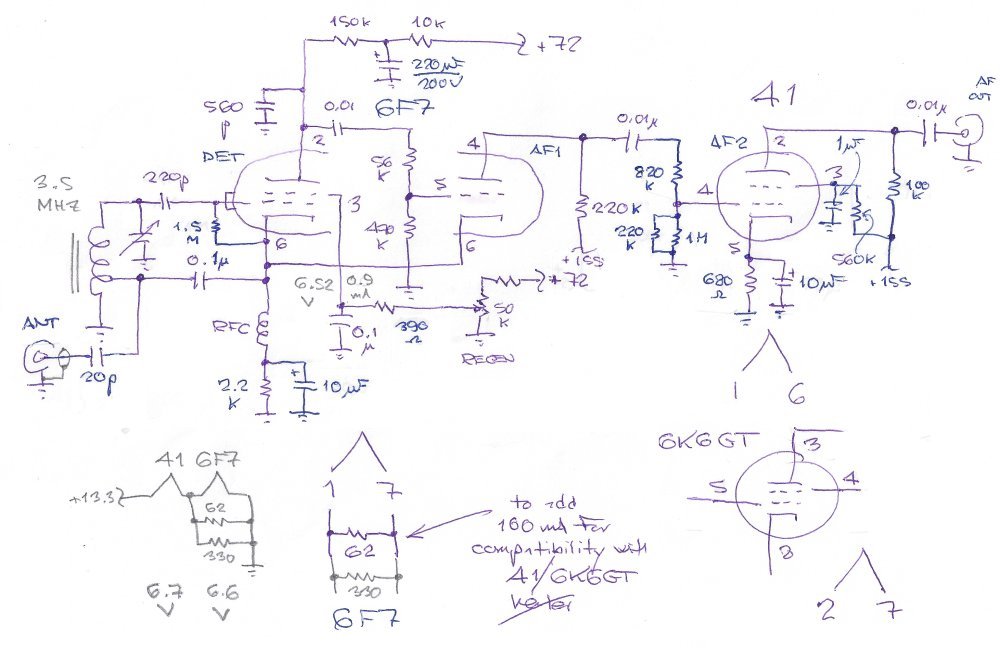 150K
10K
+72
+
220µF
200V
560
p
0.01
6F7
2
DET
3.5
MHZ
220p
1.5
M
3
6
56
K
470
K
5
4
AF1
6
0.01µ
820
K
220K
220
K
1M
+155
41
AF2
2
1µF
3
4
5
0.01µ
AF
OUT
100
K
560K
+155
680
Ω
+
10µF
0.1µ
6.52
V
0.9
mA
+72
50
K
REGEN
390
Ω
0.1
µ
RFC
ANT
20p
2.2
K
+
10µF
1
6
41 6F7
+13.3
62
330
6.7
V
6.6
V
1
7
62
330
6F7
to add
160 mA for
compatibility with
41/6K6GT
6K6GT
3
5
4
8
2
7